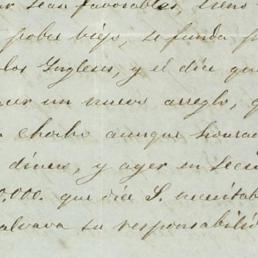 r sean favorables,
pobre viejo, se funda p
los Ingleses, y el dia que
cer un nuevo arreglo, q
chocho aunque honrad
dinero, y ayer en
0,000. que dice S. necesitab
alvava su responsabili